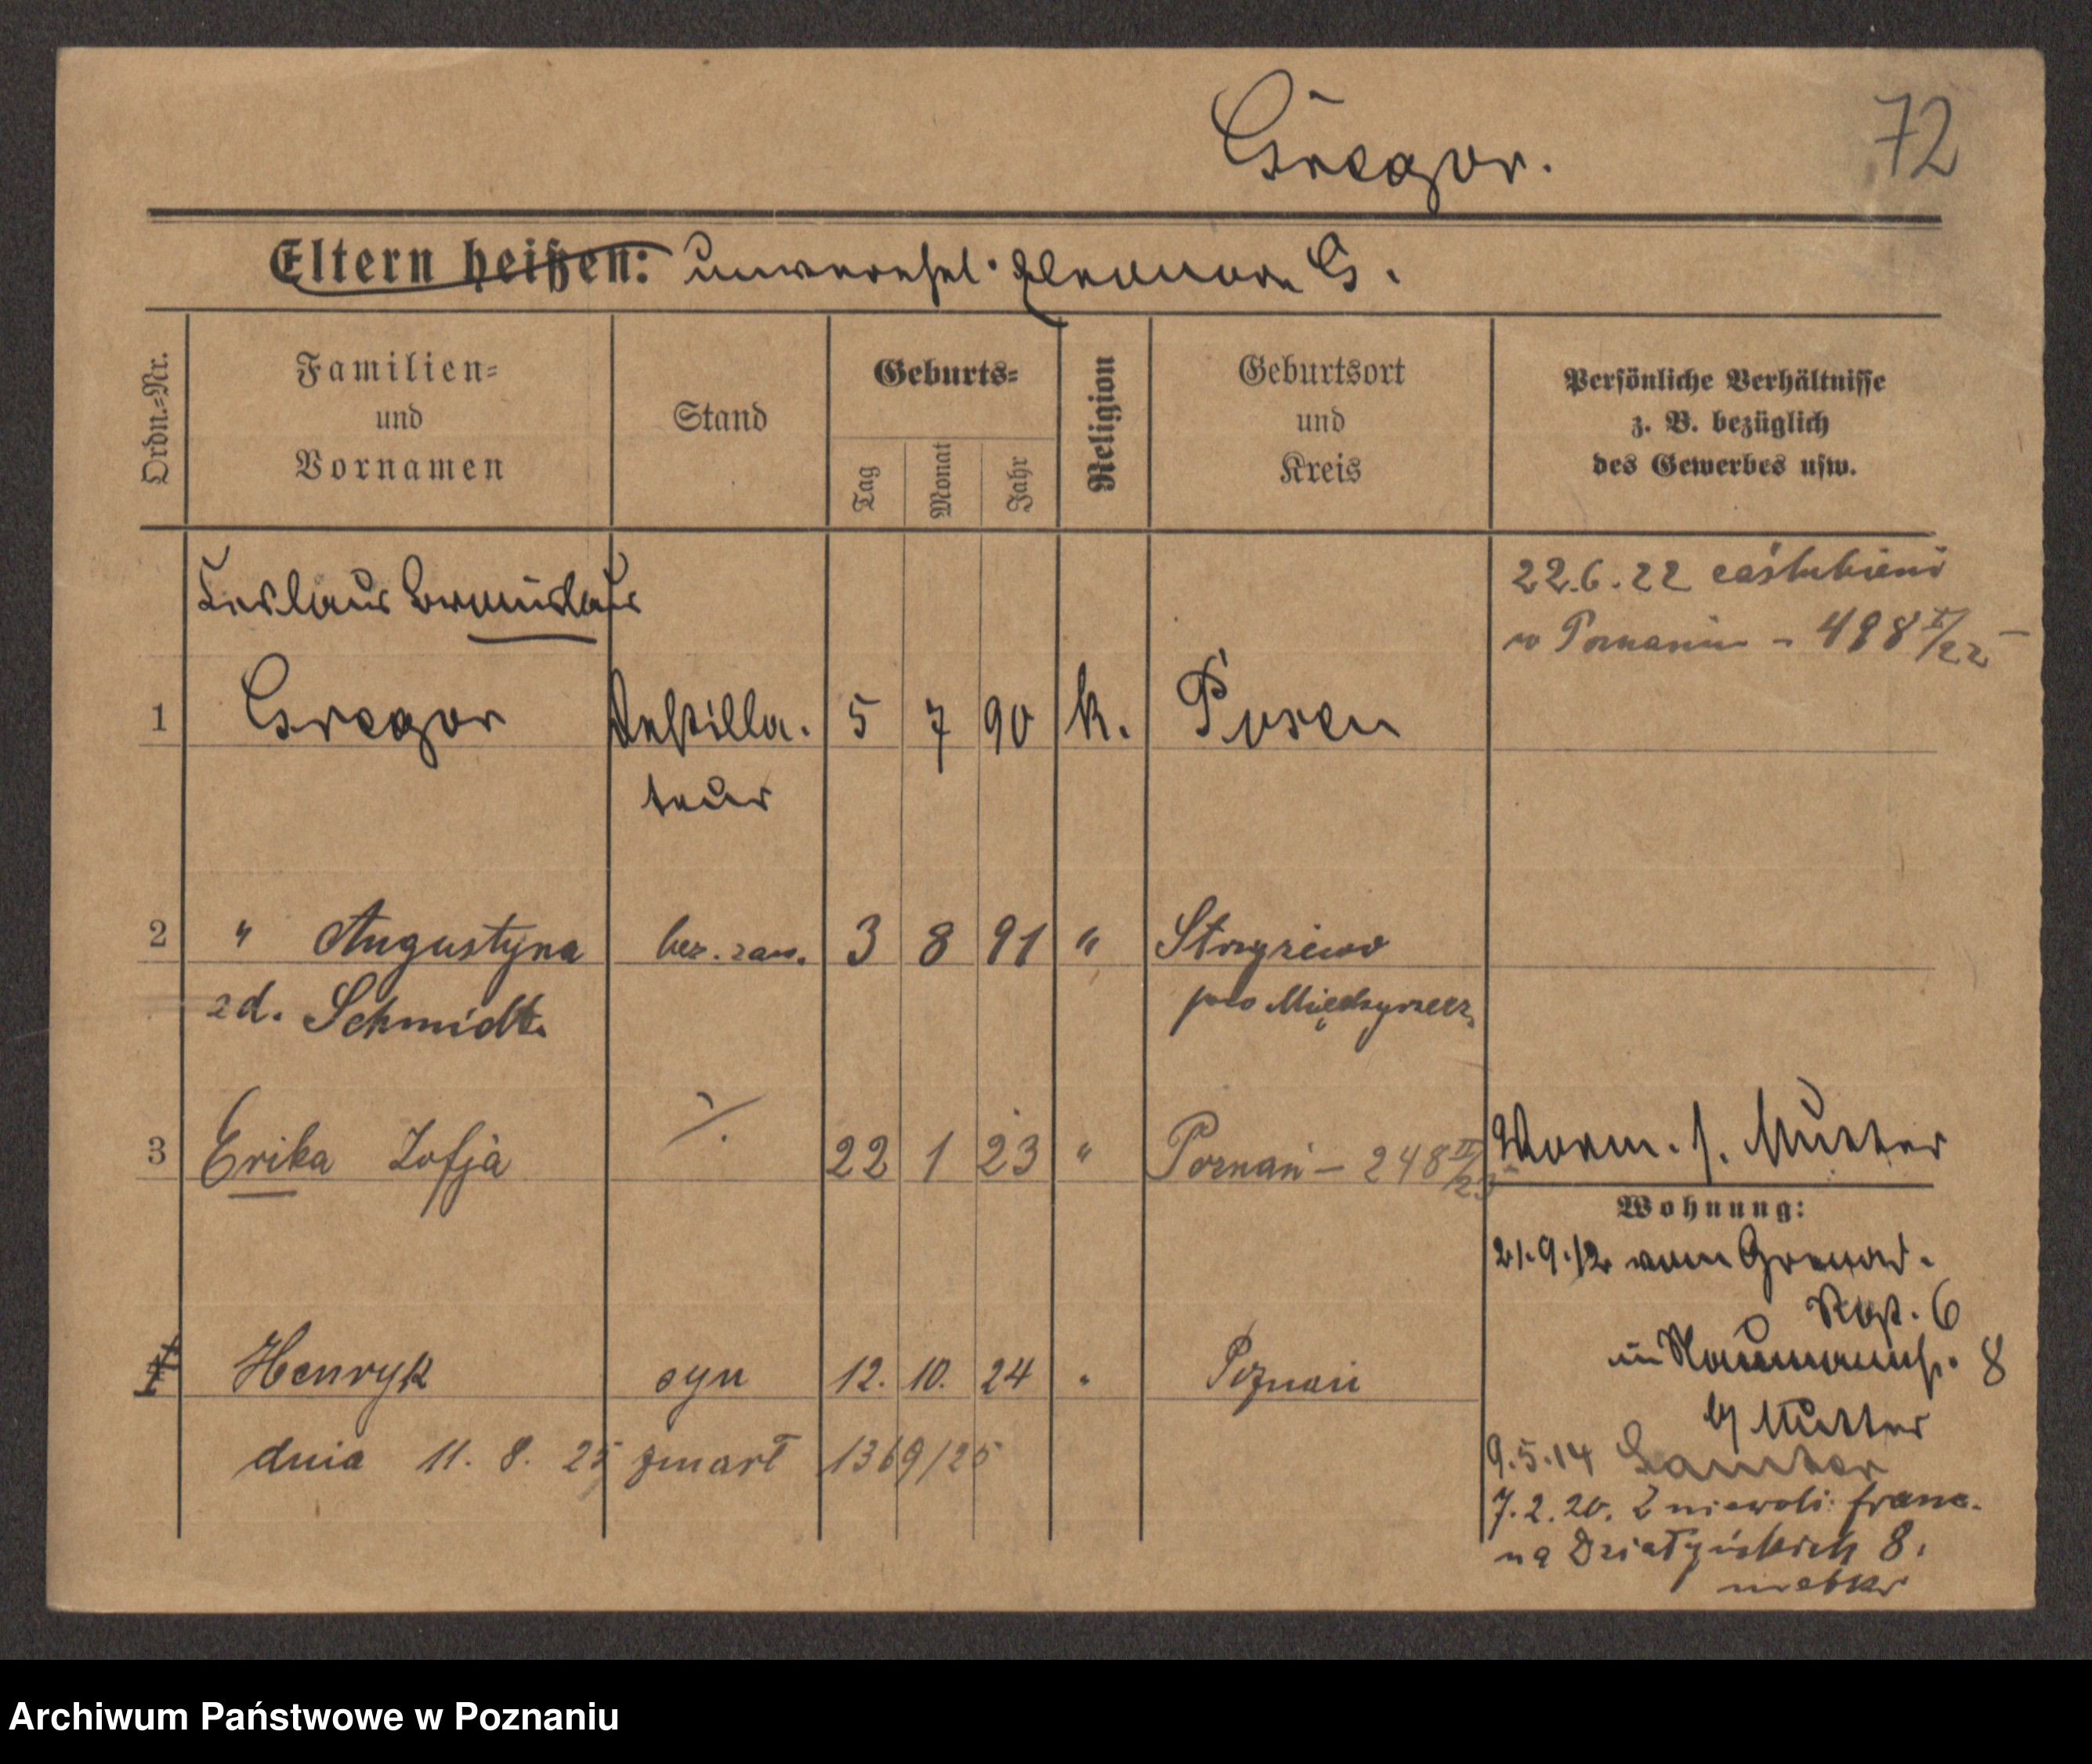 Gregor.
72
Eltern heißen: unverehel. Eleonora G.
Ordn.=Nr.
Familien=
und
Vornamen
Stand
Geburts=
Tag
Monat
Jahr
Religion
Geburtsort
und
Kreis
Persönliche Verhältnisse
z. B. bezüglich
des Gewerbes usw.
Bronislaus
22.6.22 zaślubieni
w Poznaniu - 498 /22
1 Gregor Destilla. 5 7 90 k. Posen
teur
2 " Augustyna bez. zaw. 3 8 91 " Strzyżewo
zd. Schmidt.
pow Międzyrzecz
3 Erika Zofja ·/. 22 1 23 " Poznań - 248 II/23
Vorm. s. Mutter
Wohnung:
21.9.12 vom Grenad.
Rgt. 6
in Naumannst. 8
b/ Mutter
4 Henryk syn 12. 10. 24 " Poznań
dnia 11. 8. 25 zmarł 1369/25
9.5.14 Samter
7.2.20. Z niewoli franc.
na Działyńskich 8.
matka
Archiwum Państwowe w Poznaniu